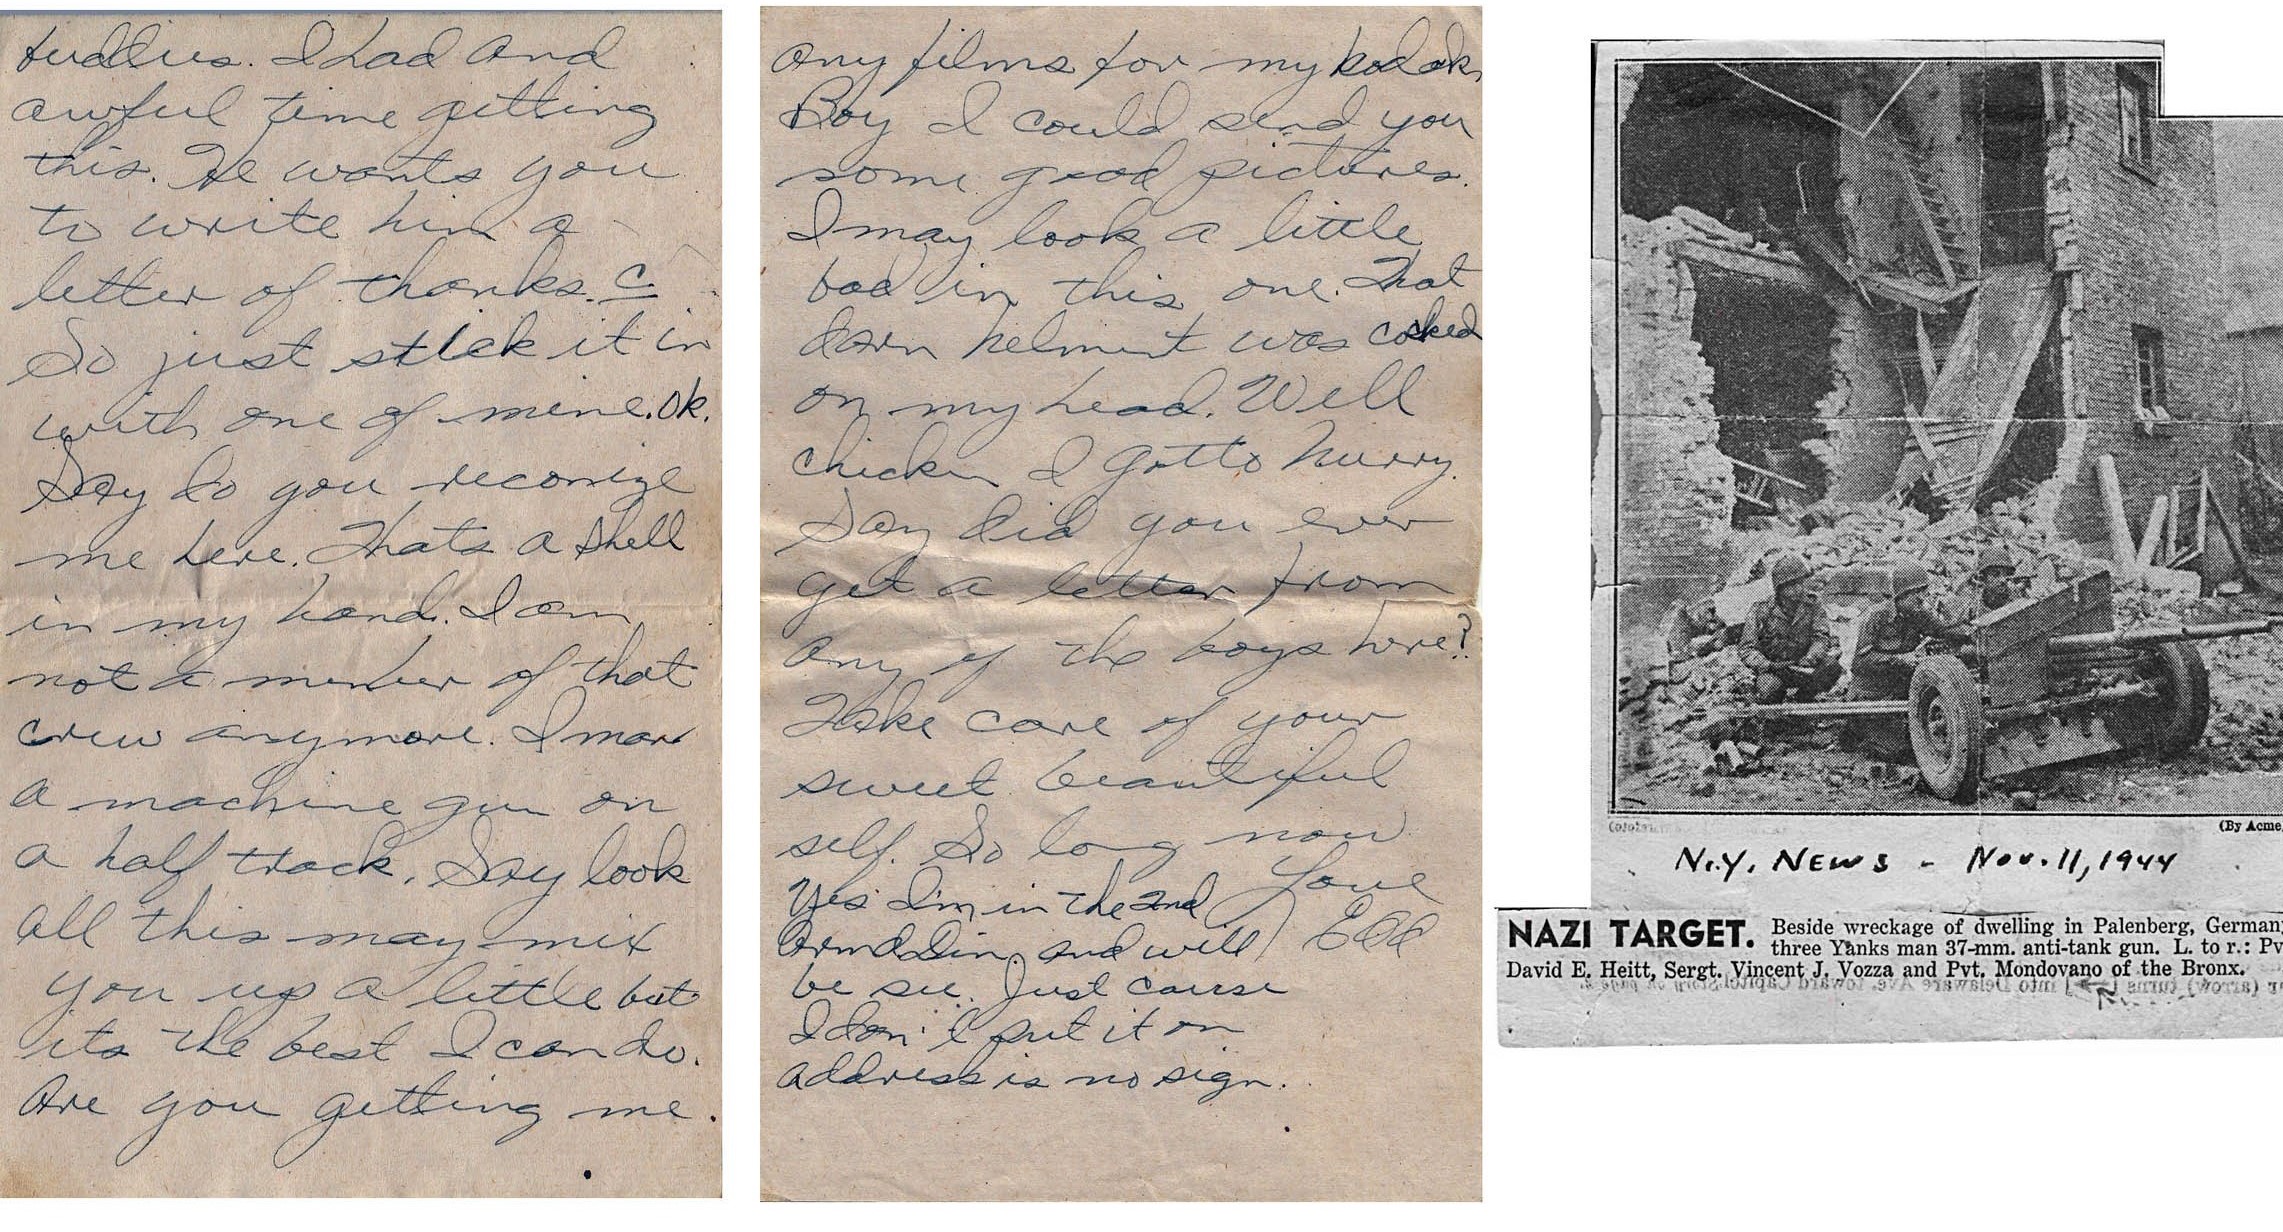 buddies. I had and
awful time getting
this. He wants you
to write him a
letter of thanks.
So just stick it in
with one of mine. Ok.
Say do you reconize
me here. Thats a shell
in my hand. I am
not a member of that
crew anymore. I man
a machine gun on
a half track. Say look
all this may mix
you up a little but
its the best I can do.
Are you getting me.
any films for my kodak
Boy I could send you
some good pictures.
I may look a little
bad in this one. That
darn helment was cocked
on my head. Well
chicken I gotto hurry.
Say did you ever
get a letter from
any of the boys here?
Take care of your
sweet beautiful
self. So long now
Love
Yes I'm in the 2nd
Armd Div and will
be see. Just cause
I don't put it on
address is no sign.
(By Acme
N.Y. NEWS - Nov. 11, 1944
NAZI TARGET. Beside wreckage of dwelling in Palenberg, German
three Yanks man 37-mm. anti-tank gun. L. to r.: Pv
David E. Heitt, Sergt. Vincent J. Vozza and Pvt. Mondovano of the Bronx.